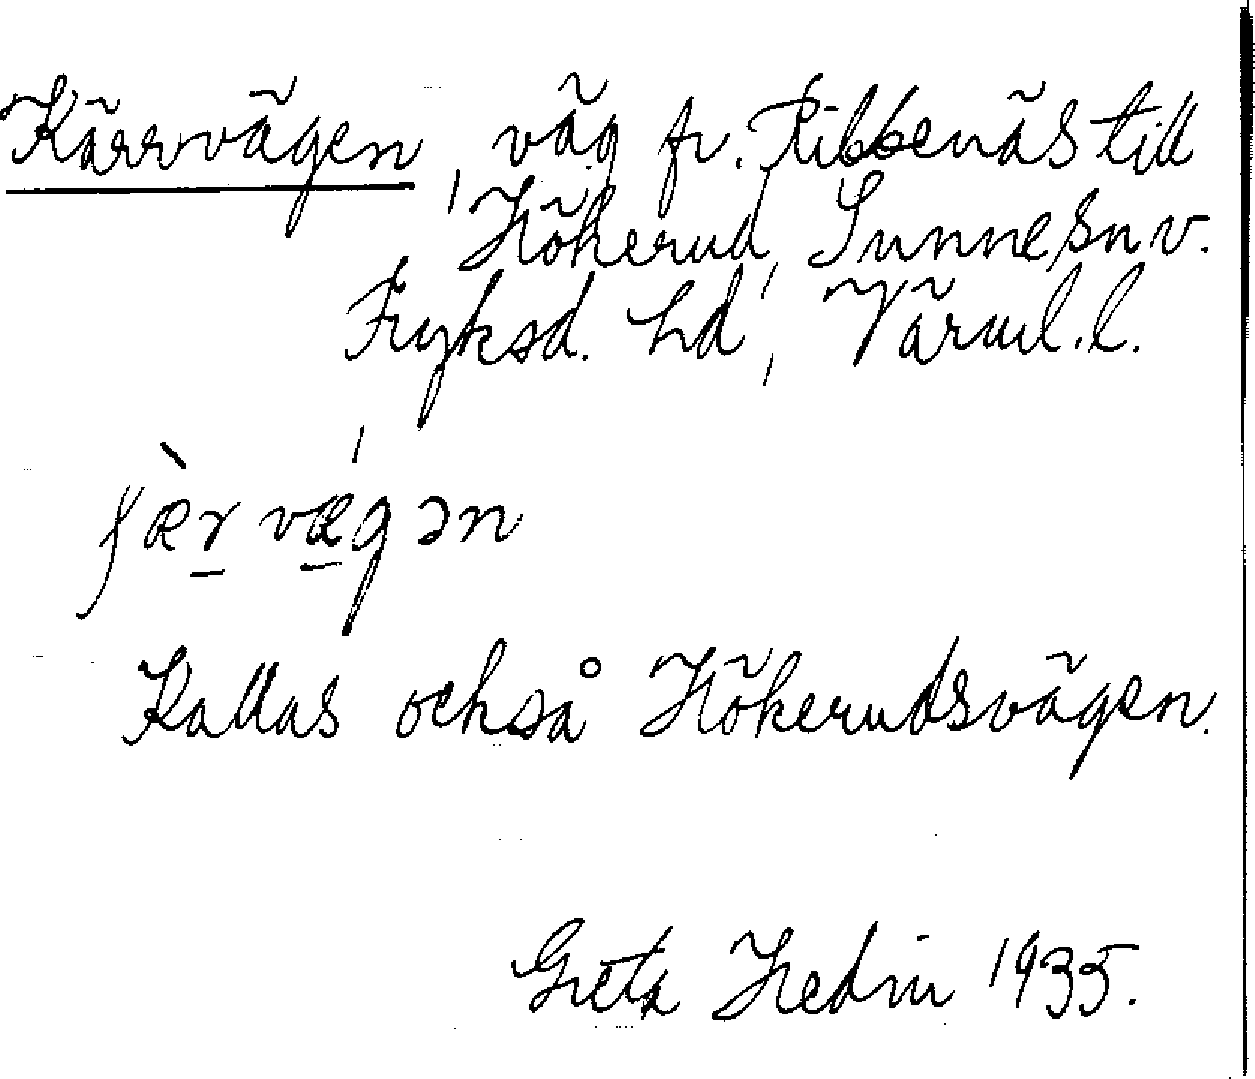 Kärrvägen, väg fr. Ribbenäs till
Hökerud, Sunne sn v.
Fryksd. hd, Värml. l.
ʃæ̀r vǽgən
Kallas också Hökerudsvägen.
Greta Hedin 1935.